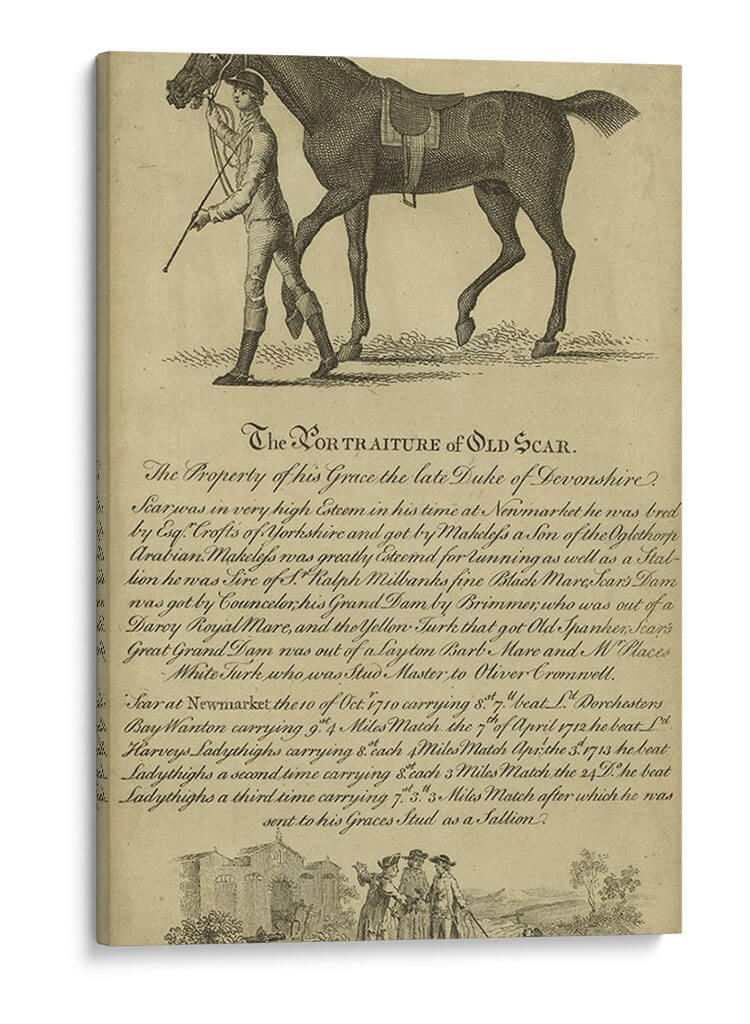 The PORTRAITURE of OLD SCAR.
The Property of his Grace the late Duke of Devonshire.
Scar was in very high Esteem in his time at Newmarket he was bred
by Esqr. Crofts of Yorkshire and got by Makeless a Son of the Oglethorp
Arabian. Makeless was greatly Esteemd for running as well as a Stal-
lion he was Sire of Sr. Ralph Milbanks fine Black Mare, Scar's Dam
was got by Councelor, his Grand Dam by Brimmer, who was out of a
Darcy Royal Mare, and the Yellow Turk that got Old Spanker, Scar's
Great Grand Dam was out of a Layton Barb Mare and Mr. Places
White Turk who was Stud Master to Oliver Cromwell.
Scar at Newmarket the 10 of Octr. 1710 carrying 8st. 7ll. beat Ld. Dorchesters
Bay Wanton carrying 9st. 4 Miles Match the 7th of April 1712 he beat Ld.
Harveys Ladythighs carrying 8st. each 4 Miles Match Apr. the 3d. 1713 he beat
Ladythighs a second time carrying 8st. each 3 Miles Match the 24 Do. he beat
Ladythighs a third time carrying 7st. 3ll. 3 Miles Match after which he was
sent to his Graces Stud as a Sallion.